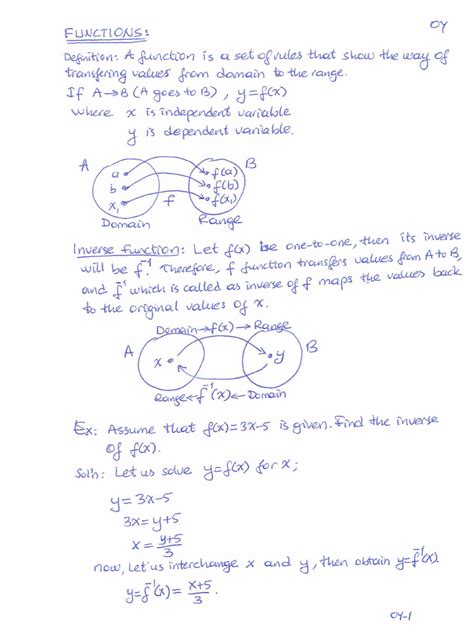 FUNCTIONS:
OY
Definition: A function is a set of rules that show the way of
transfering values from domain to the range.
If A→B (A goes to B), y=f(x)
where x is independent variable
y is dependent variable.
A
B
a
f(a)
b
f(b)
x₁
f
f(x₁)
Domain
Range
Inverse Function: Let f(x) be one-to-one, then its inverse
will be f⁻¹. Therefore, f function transfers values from A to B,
and f⁻¹ which is called as inverse of f maps the values back
to the original values of x.
Domain→f(x)→Range
A
B
x
y
Range←f⁻¹(x)←Domain
Ex: Assume that f(x)=3x-5 is given. Find the inverse
of f(x).
Soln: Let us solve y=f(x) for x;
y=3x-5
3x=y+5
x=(y+5)/3
now, Let us interchange x and y, then obtain y=f⁻¹(x).
y=f⁻¹(x)=(x+5)/3.
OY-1